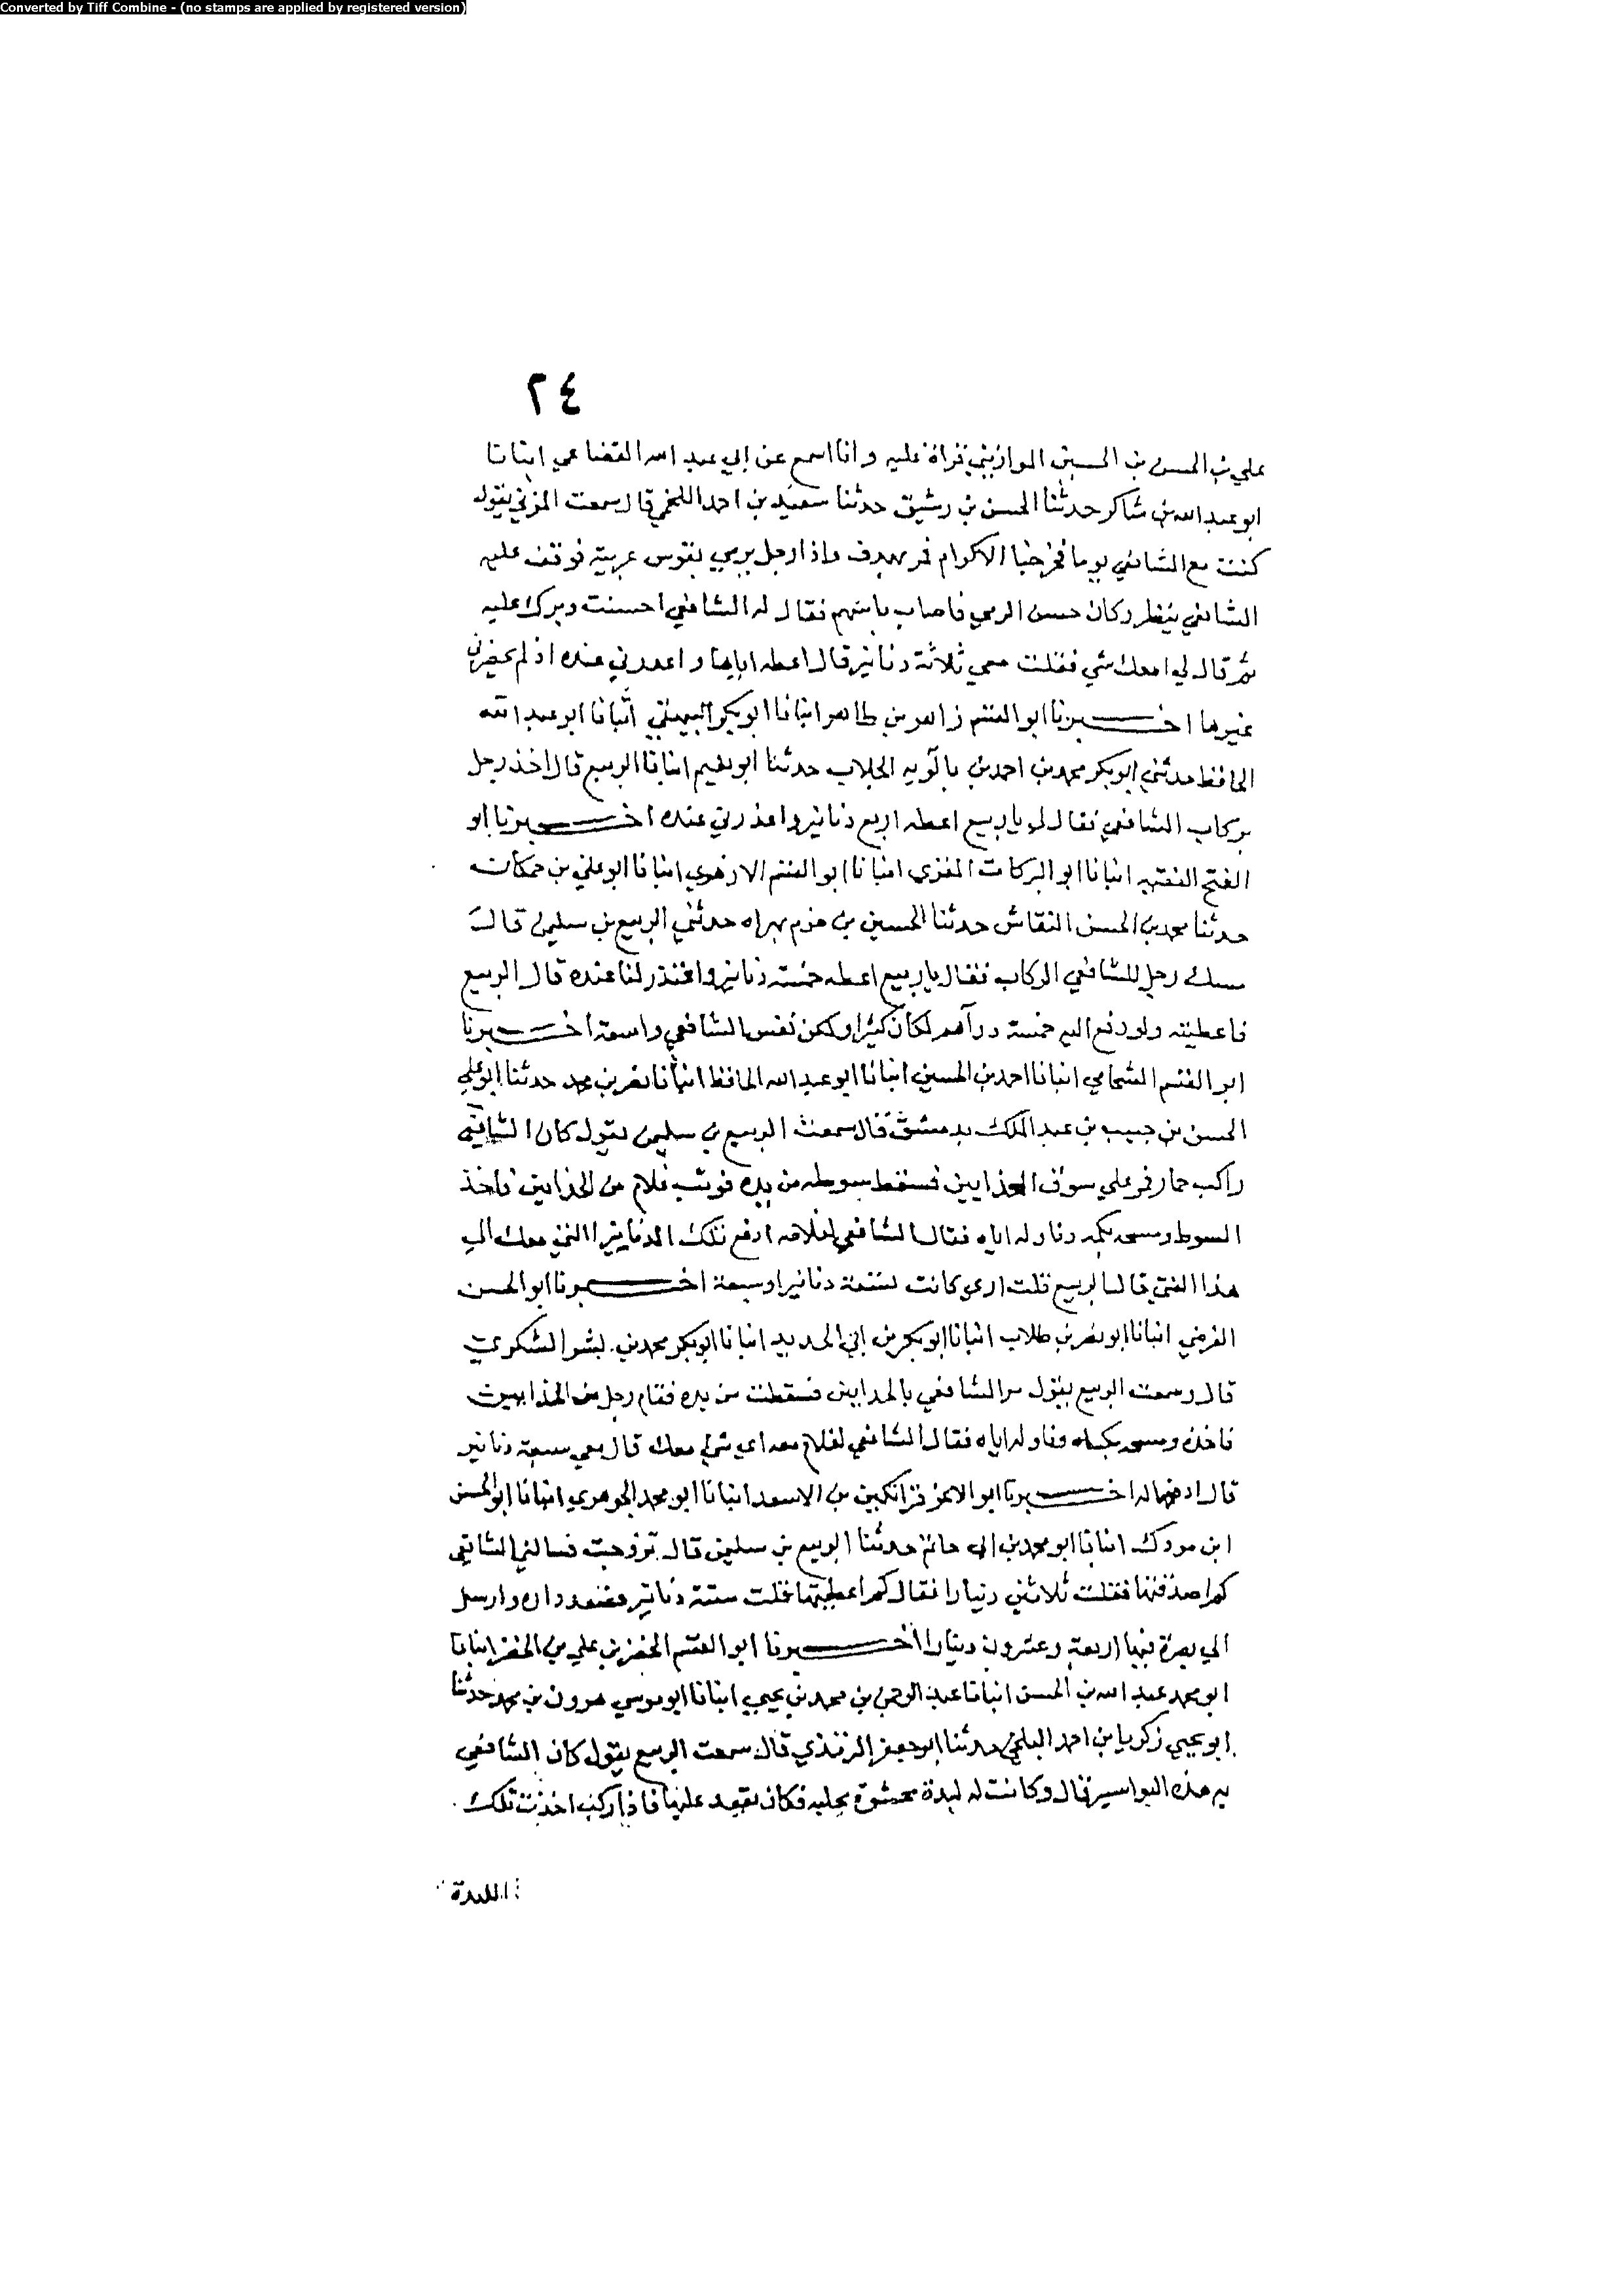 Converted by Tiff Combine - (no stamps are applied by registered version)
٢٤
علي بن الحسن بن الحسين الموازيني قراة عليه وانا اسمع عن ابي عبد الله القضاعي انبانا
ابو عبد الله بن شاكر حدثنا الحسن بن رشيق حدثنا سعيد بن احمد اللخمي قال سمعت المزني يقول
كنت مع الشافعي يوما فخرجنا الاكوام فمر بهدف واذا رجل يرمي بقوس عربية فوقف عليه
الشافعي ينظر وكان حسن الرمي فاصاب باسهم فقال له الشافعي احسنت وبرك عليه
ثم قال لي امعك شي فقلت معي ثلاثة دنانير قال اعطه اياها واعدرني عنده اذ لم يحضرني
غيرها اخبرنا ابو القسم زاهر بن طاهر انبانا ابو بكر البيهقي انبانا ابو عبد الله
الحافظ حدثني ابو بكر محمد بن احمد بن بالويه الجلاب حدثنا ابو نعيم انبانا الربيع قال اخذ رجل
بركاب الشافعي فقال لي يا ربيع اعطه اربع دنانير واعذرني عنده اخبرنا ابو
الفتح الفقيه انبانا ابو البركات المقري انبانا ابو القسم الازهري انبانا ابو علي بن حمكان
حدثنا محمد بن الحسن النقاش حدثنا الحسين بن حزم بهراه حدثني الربيع بن سليمن قال
مسك رجل للشافعي الركاب فقال يا ربيع اعطه خمسة دنانير واعتذر لنا عنده قال الربيع
فاعطيته ولو دفع اليه خمسة دراهم لكان كثيرا ولكن نفس الشافعي واسعة اخبرنا
ابو القسم الشحامي انبانا احمد بن الحسين انبانا ابو عبد الله الحافظ انبانا نصر بن محمد حدثنا ابو علي
الحسن بن حبيب بن عبد الملك بدمشق قال سمعت الربيع بن سليمن يقول كان الشافعي
راكب حمار فمر علي سوق الحذايين فسقط سوطه من يده فوثب غلام من الحذايين فاخذ
السوط ومسحه بكمه وناوله اياه فقال الشافعي لغلامه ادفع تلك الدنانير التي معك الي
هذا الفتي قال الربيع قلت ادري كانت تسعة دنانير او سبعة اخبرنا ابو الحسن
الفرضي انبانا ابو نصر بن طلاب انبانا ابو بكر بن ابي الحديد انبانا ابو بكر محمد بن بشر الشكري
قال وسمعت الربيع يقول مر الشافعي بالحدايين فسقطت من يده فقام رجل من الحذايين
فاخذه ومسحه بكمه وناوله اياه فقال الشافعي لغلام معه اي شي معك قال معي سبعة دنانير
قال ادفعها له اخبرنا ابو الاعز قراتكين بن الاسعد انبانا ابو محمد الجوهري انبانا ابو الحسن
ابن مردك انبانا ابو محمد بن ابي حاتم حدثنا الربيع بن سليمن قال تزوجت فسالني الشافعي
كم اصدقتها فقلت ثلاثين دينارا فقال كم اعطيتها قلت ستة دنانير فصعد داره وارسل
الي بصرة فيها اربعة وعشرون دينارا اخبرنا ابو القسم الخضر بن علي بن الخضر انبانا
ابو محمد عبد الله بن الحسن انبانا عبد الرحمن بن محمد بن يحيي انبانا ابو موسي هرون بن محمد حدثنا
ابو يحيي زكريا بن احمد البلخي حدثنا ابو جعفر الترمذي قال سمعت الربيع يقول كان الشافعي
به هذه البواسير قال وكانت له لبدة محشوة بحلبه فكان يقعد عليها فاذا ركب اخذت تلك
اللبدة